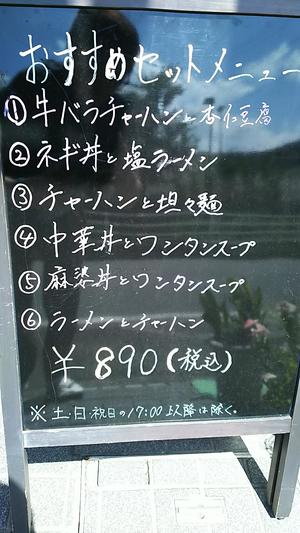 おすすめセットメニュー
①牛バラチャーハンと杏仁豆腐
②ネギ丼と塩ラーメン
③チャーハンと坦々麺
④中華丼とワンタンスープ
⑤麻婆丼とワンタンスープ
⑥ラーメンとチャーハン
¥890(税込)
※土・日・祝日の17:00以降は除く。